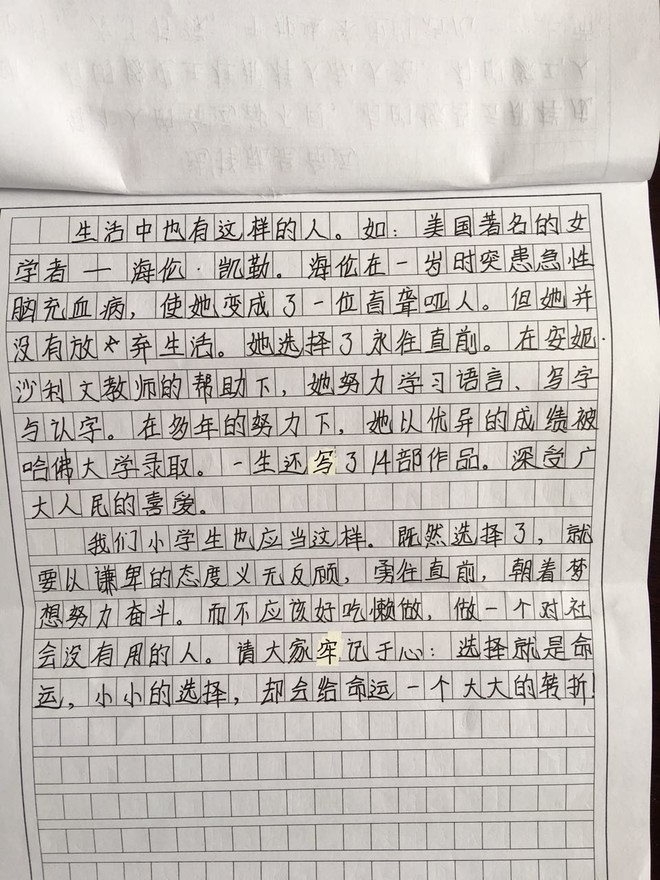 生活中也有这样的人。如：美国著名的女
学者——海伦·凯勒。海伦在一岁时突患急性
脑充血病，使她变成了一位盲聋哑人。但她并
没有放弃生活。她选择了永往直前。在安妮·
沙利文教师的帮助下，她努力学习语言、写字
与认字。在多年的努力下，她以优异的成绩被
哈佛大学录取。一生还写了14部作品。深受广
大人民的喜爱。
我们小学生也应当这样。既然选择了，就
要以谦卑的态度义无反顾，勇往直前，朝着梦
想努力奋斗。而不应该好吃懒做，做一个对社
会没有用的人。请大家牢记于心：选择就是命
运，小小的选择，却会给命运一个大大的转折！